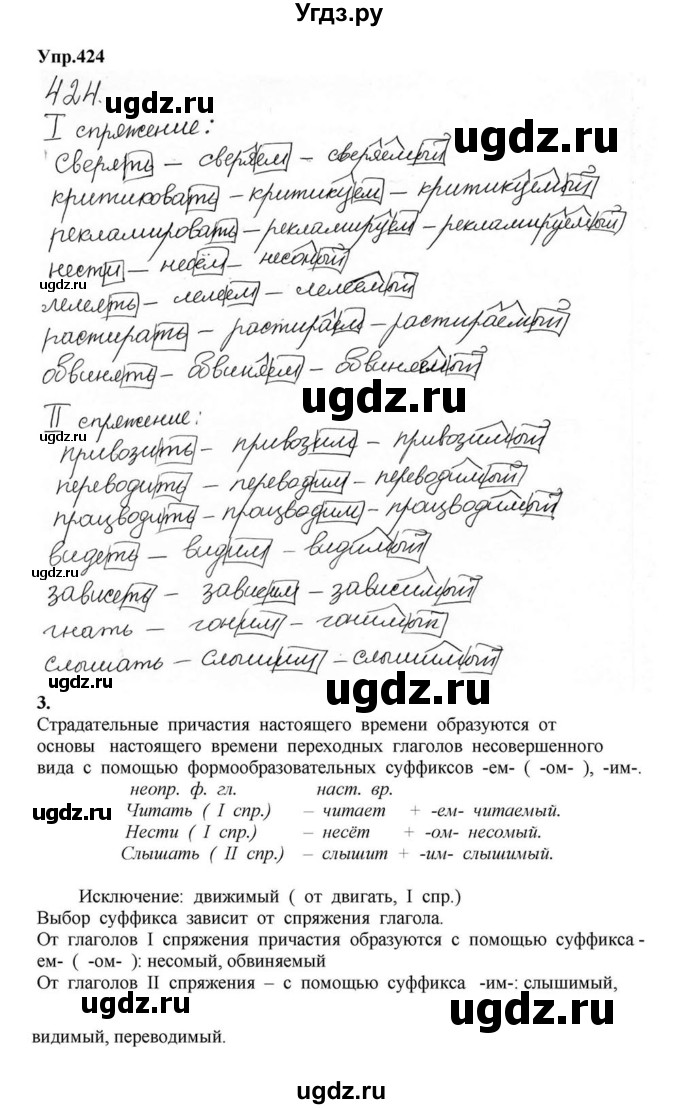 Угдз.ру
Упр.424
424.
ugdz.ru
I спряжение:
сверлять – сверяем – сверяемый
критиковать – критикуем – критикуемый
рекламировать – рекламируем – рекламируемый
нести – несём – несомый
ugdz.ru
лелеять – лелеем – лелеемый
растирать – растираем – растираемый
обвинять – обвиняем – обвиняемый
ugdz.ru
ugdz.ru
II спряжение:
привозить – привозим – привозимый
переводить – переводим – переводимый
ugdz.ru
производить – производим – производимый
видеть – видим – видимый
ugdz.ru
зависеть – зависим – зависимый
гнать – гоним – гонимый
слышать – слышим – слышимый
ugdz.ru
ugdz.ru
3.
Страдательные причастия настоящего времени образуются от
основы настоящего времени переходных глаголов несовершенного
вида с помощью формообразовательных суффиксов -ем- ( -ом- ), -им-.
неопр. ф. гл. наст. вр.
ugdz.ru
Читать ( I спр.) – читает + -ем- читаемый.
Нести ( I спр.) – несёт + -ом- несомый.
Слышать ( II спр.) – слышит + -им- слышимый.
ugdz.ru
Исключение: движимый ( от двигать, I спр.)
Выбор суффикса зависит от спряжения глагола.
От глаголов I спряжения причастия образуются с помощью суффикса -
ем- ( -ом- ): несомый, обвиняемый
От глаголов II спряжения – с помощью суффикса -им-: слышимый,
ugdz.ru
видимый, переводимый.
ugdz.ru